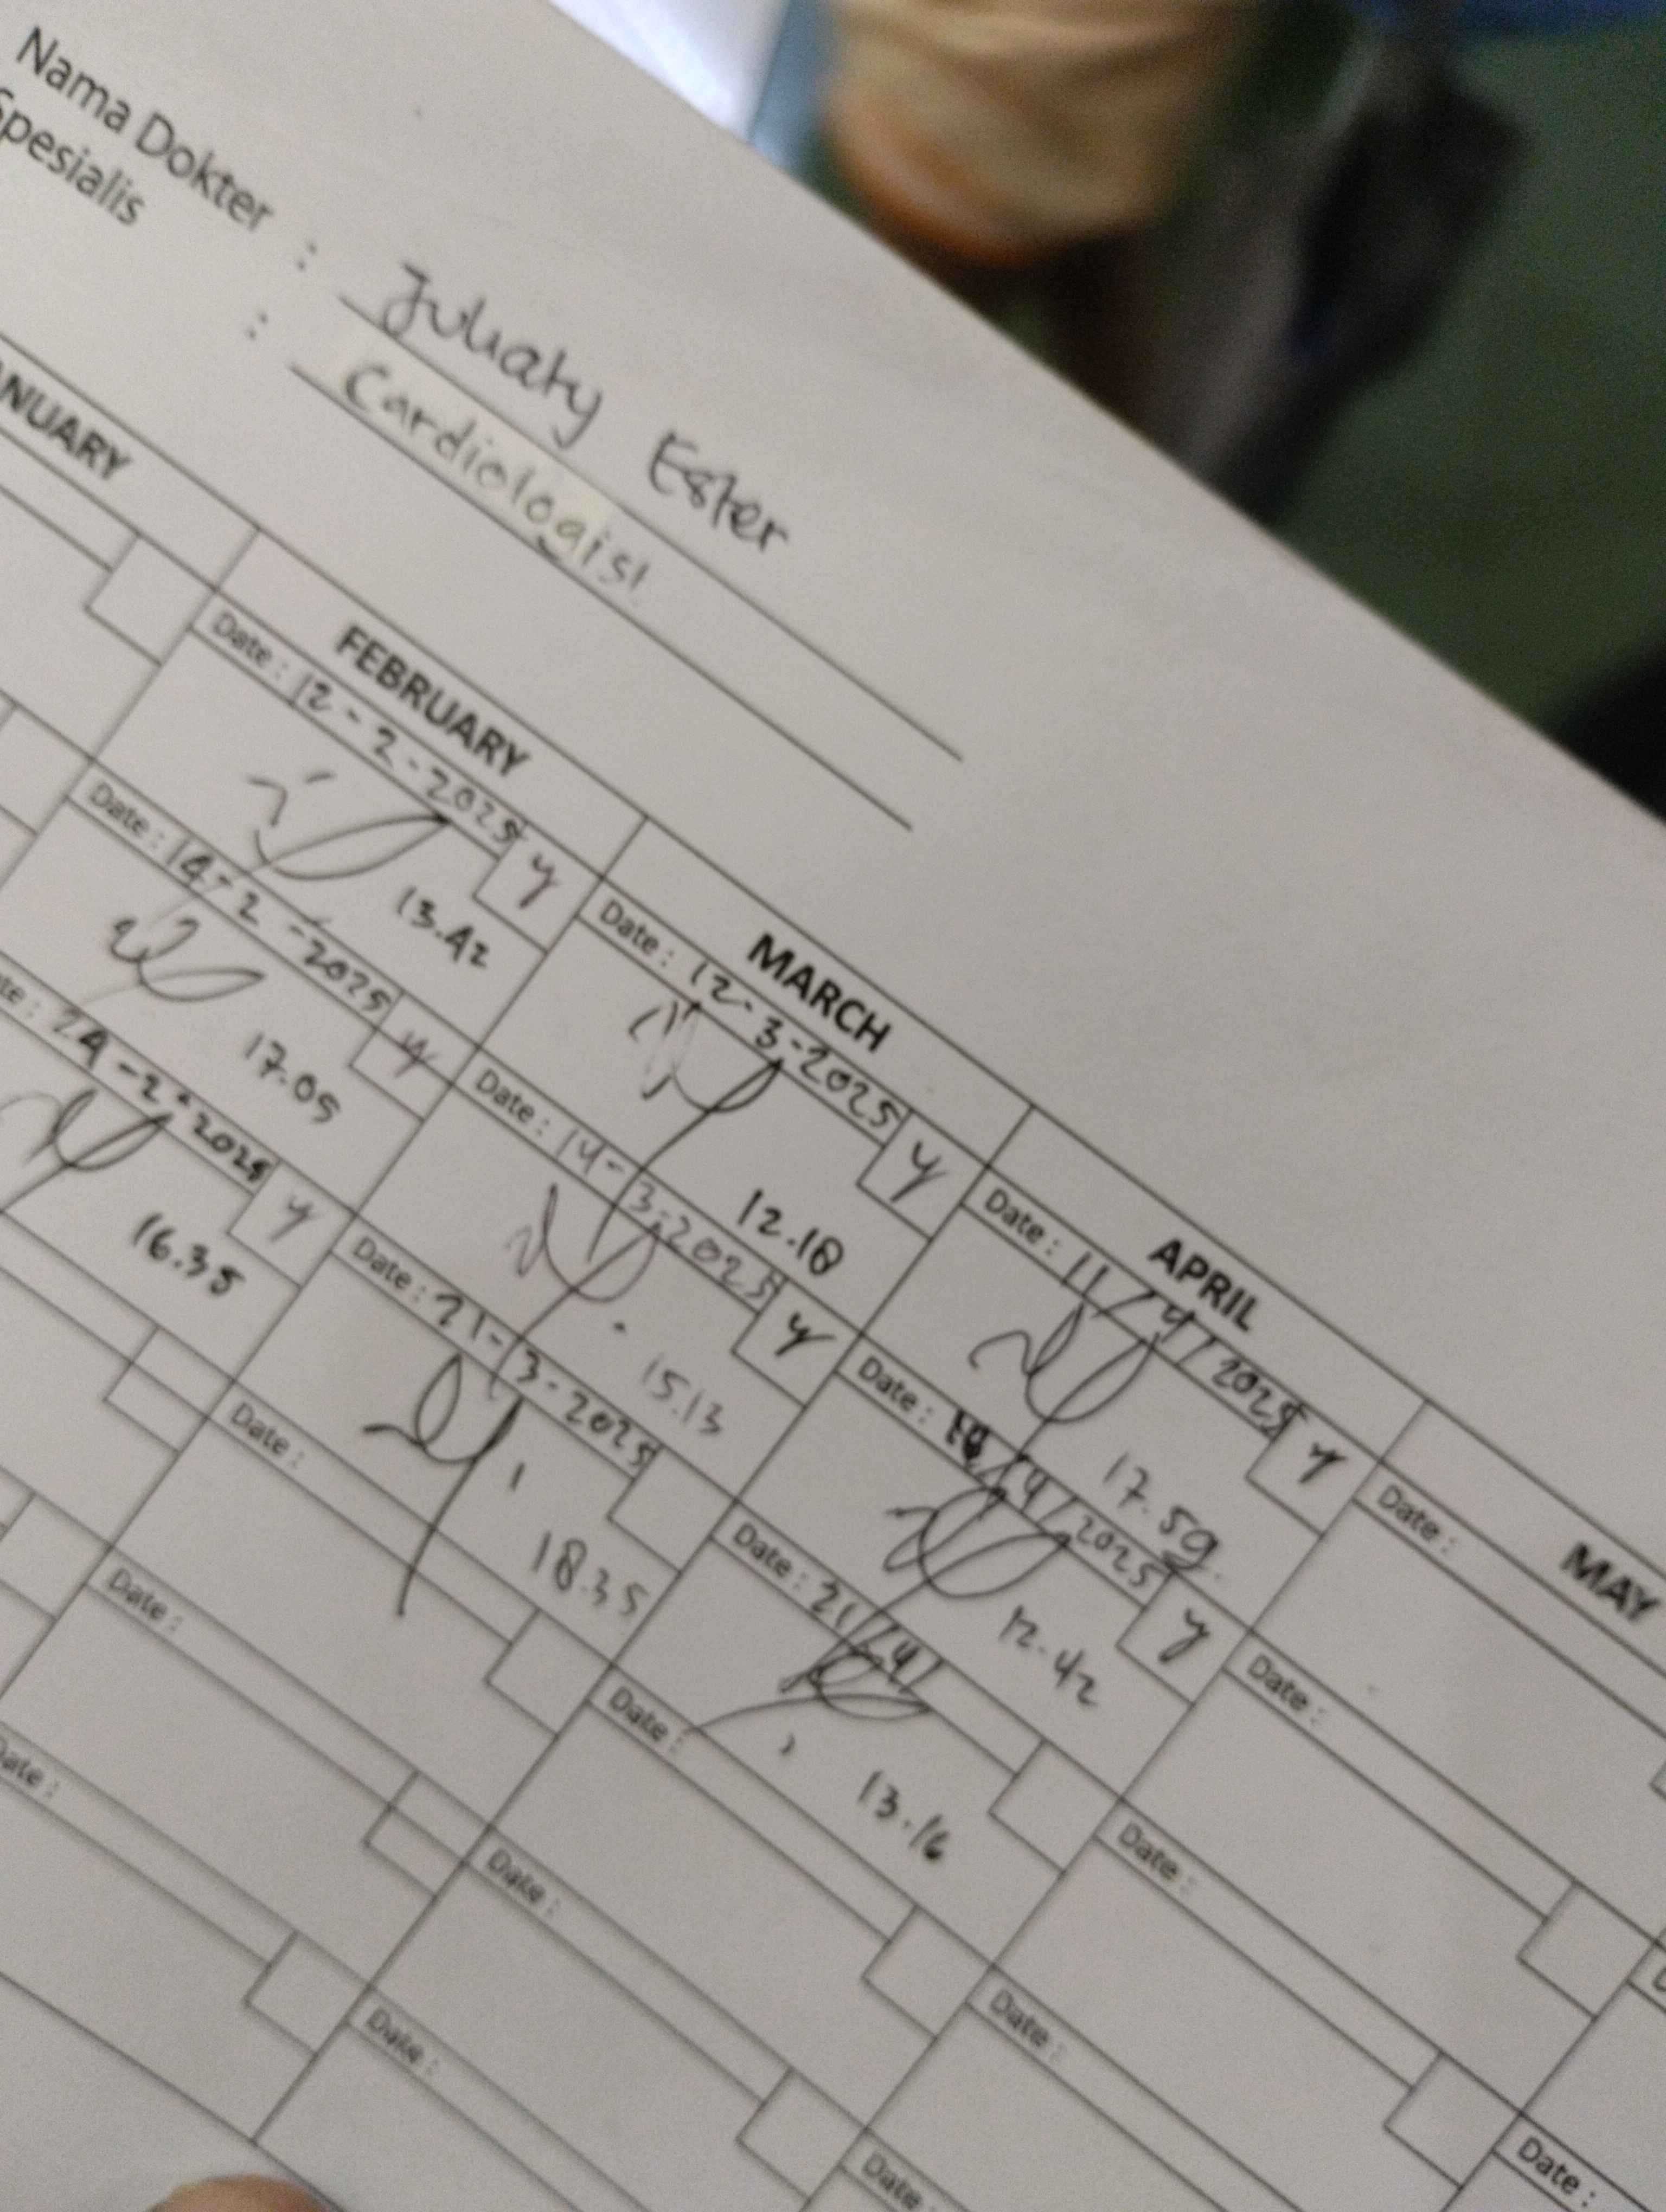 Nama Dokter : Juliaty Ester
Spesialis : Cardiologist
NUARY
FEBRUARY
Date : 12-2-2025 y
13.42
Date : 14-2-2025 y
17.05
24-2-2025 y
16.35
Date :
Date :
MARCH
Date : 12-3-2025 y
12.18
Date : 14-3-2025 y
15.13
Date : 21-3-2025
18.35
Date :
Date :
Date :
APRIL
Date : 11/4/2025 y
17.59
Date : /4/2025 y
12.42
Date : 21/4/
13.16
Date :
Date :
Date :
MAY
Date :
Date :
Date :
Date :
Date :